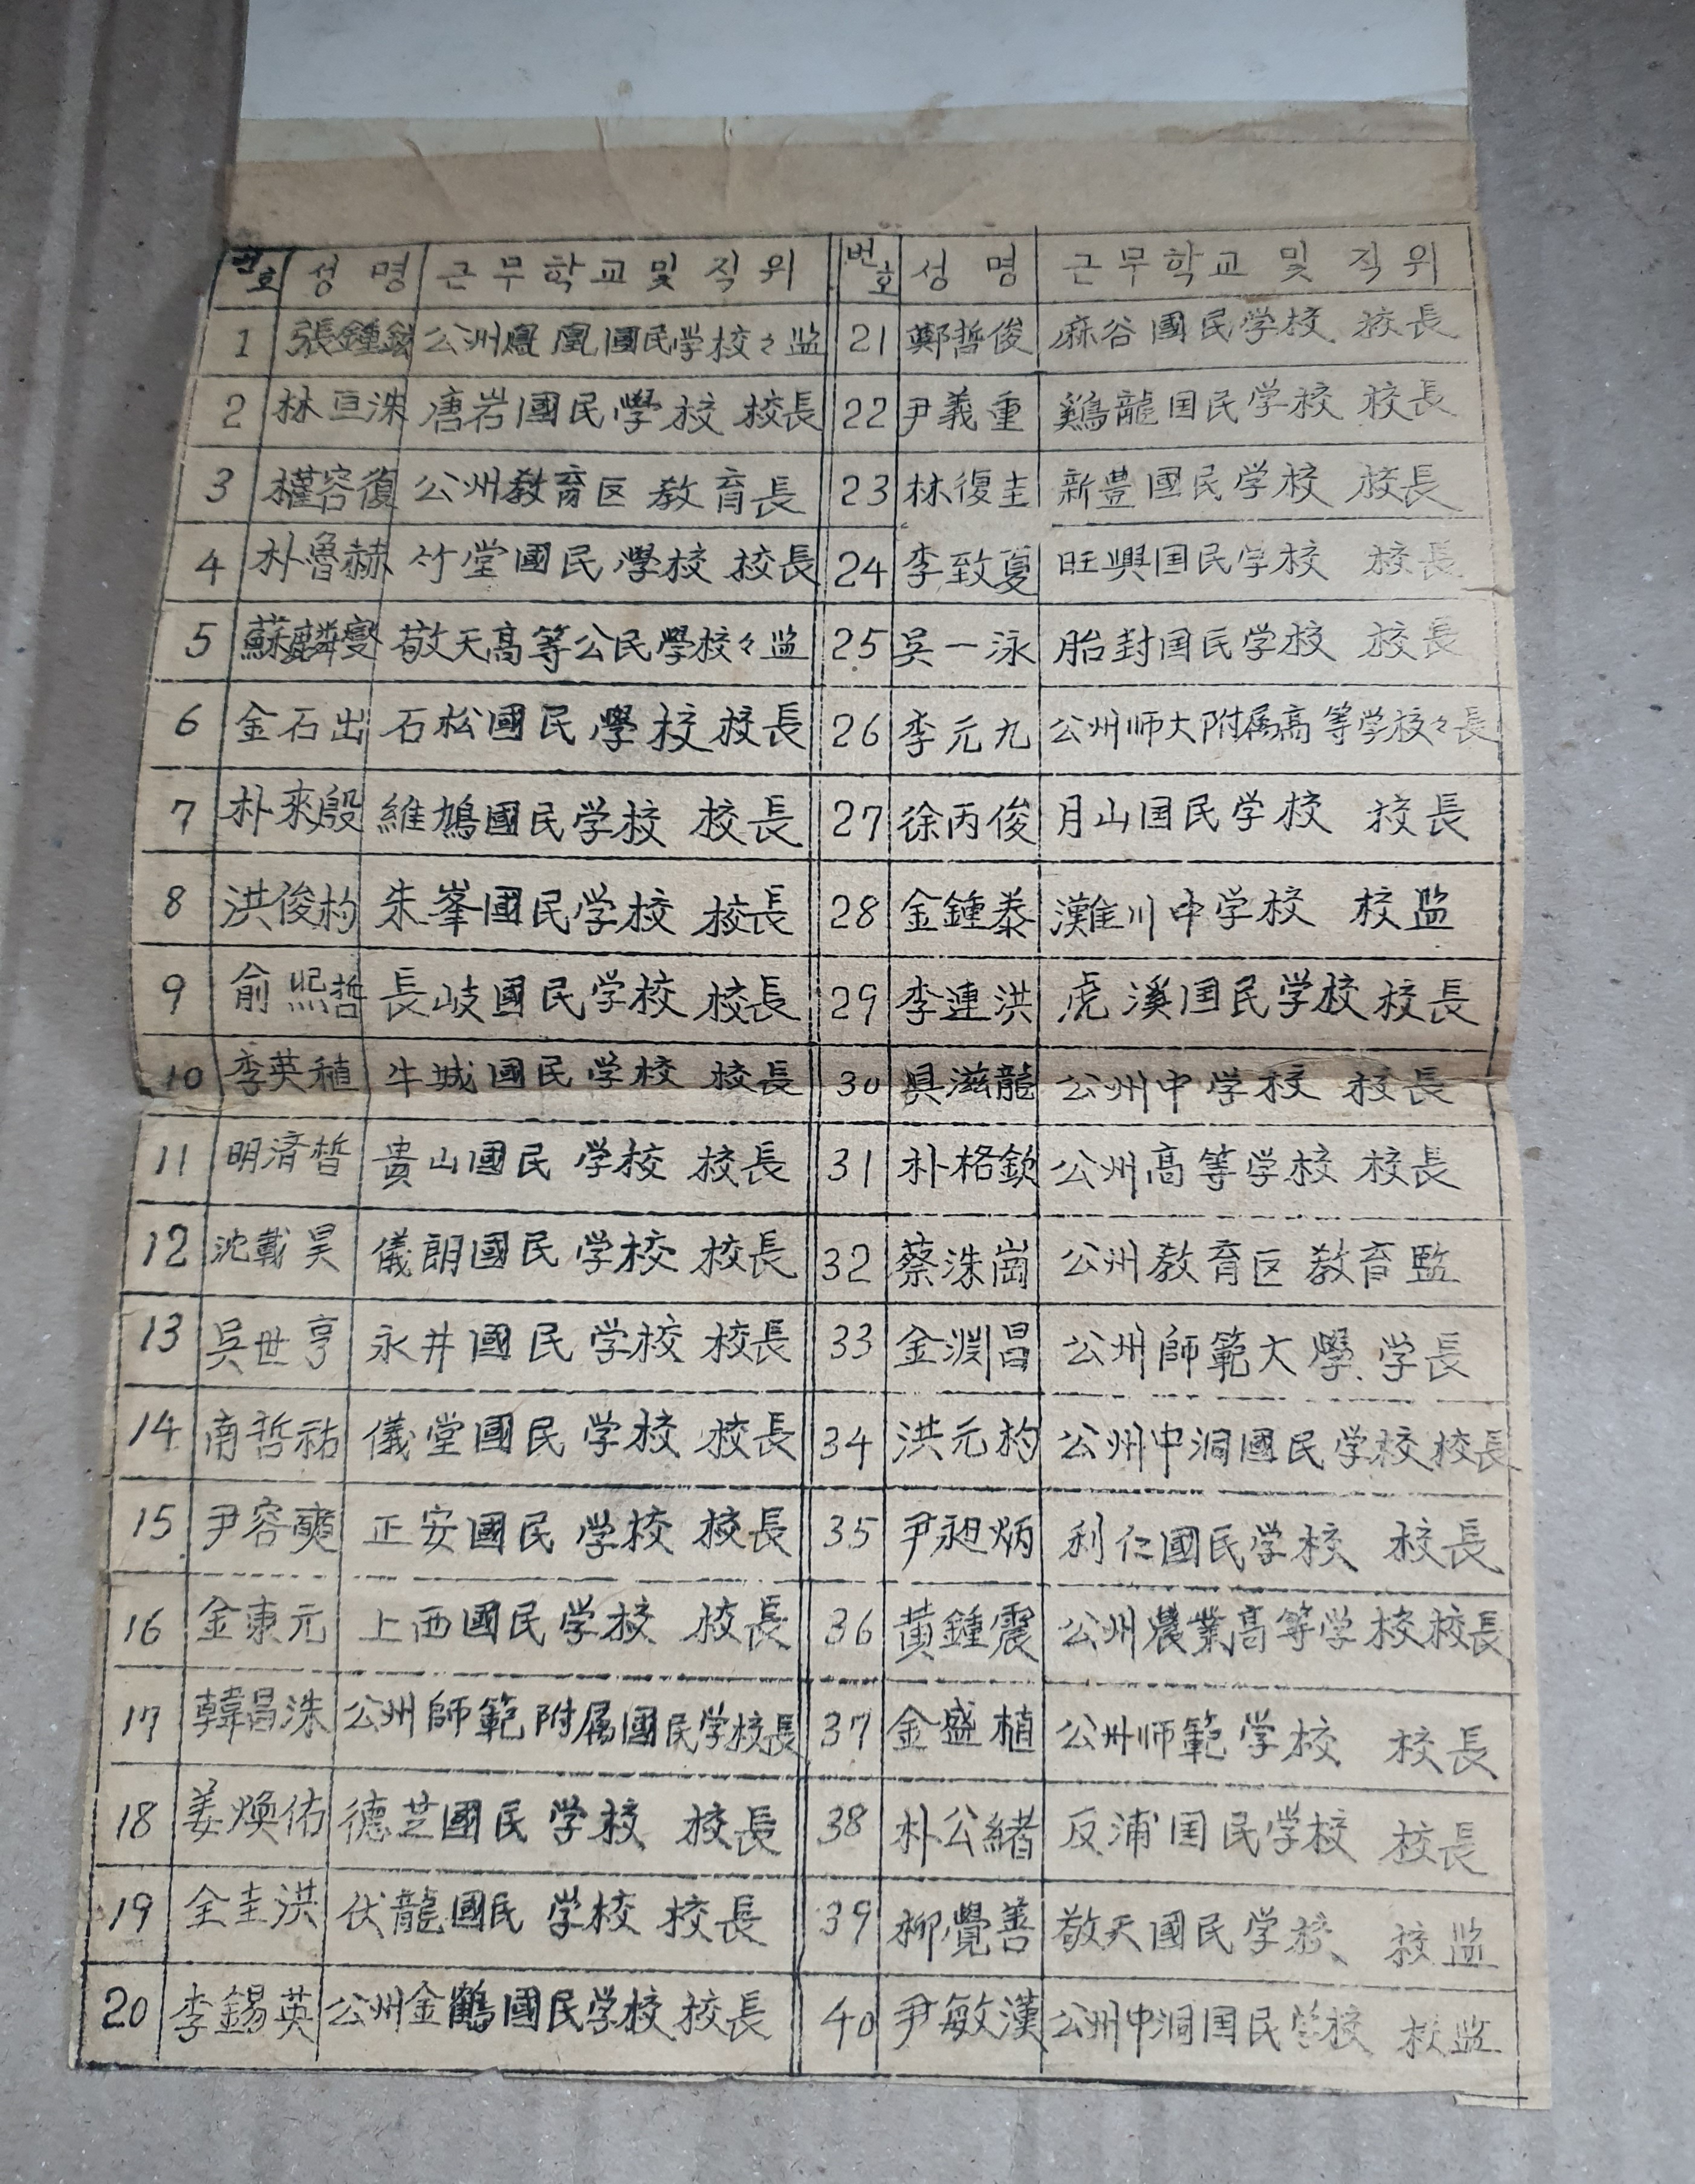 번호 성명 근무학교및직위
1 張鍾鉉 公州鳳凰國民学校々监
2 林亘洙 唐岩國民學校 校長
3 權容復 公州敎育区 敎育長
4 朴魯赫 竹堂國民學校 校長
5 蘇麟燮 敬天高等公民學校々监
6 金石出 石松國民學校 校長
7 朴來殷 維鳩國民学校 校長
8 洪俊杓 朱峯國民学校 校長
9 俞熙哲 長岐國民学校 校長
10 李英稙 牛城國民学校 校長
11 明済晳 貴山國民学校 校長
12 沈載昊 儀朗國民学校 校長
13 吳世亨 永井國民学校 校長
14 南哲祐 儀堂國民学校 校長
15 尹容奭 正安國民学校 校長
16 金東元 上西國民学校 校長
17 韓昌洙 公州師範附属國民学校長
18 姜煥佑 德芝國民学校 校長
19 全圭洪 伏龍國民学校 校長
20 李錫英 公州金鶴國民学校 校長
번호 성명 근무학교및직위
21 鄭哲俊 麻谷國民学校 校長
22 尹義重 鷄龍国民学校 校長
23 林復圭 新豊國民学校 校長
24 李致夏 旺興国民学校 校長
25 吳一泳 胎封国民学校 校長
26 李元九 公州师大附属高等学校々長
27 徐丙俊 月山国民学校 校長
28 金鍾泰 灘川中学校 校监
29 李連洪 虎溪国民学校 校長
30 具滋龍 公州中学校 校長
31 朴格欽 公州高等学校 校長
32 蔡洙崗 公州敎育区 敎育監
33 金渕昌 公州師範大學 学長
34 洪元杓 公州中洞國民学校 校長
35 尹昶炳 利仁國民学校 校長
36 黃鍾震 公州農業高等学校 校長
37 金盛植 公州师範学校 校長
38 朴公緖 反浦国民学校 校長
39 柳覺善 敬天國民学校 校监
40 尹敏漢 公州中洞国民学校 校监